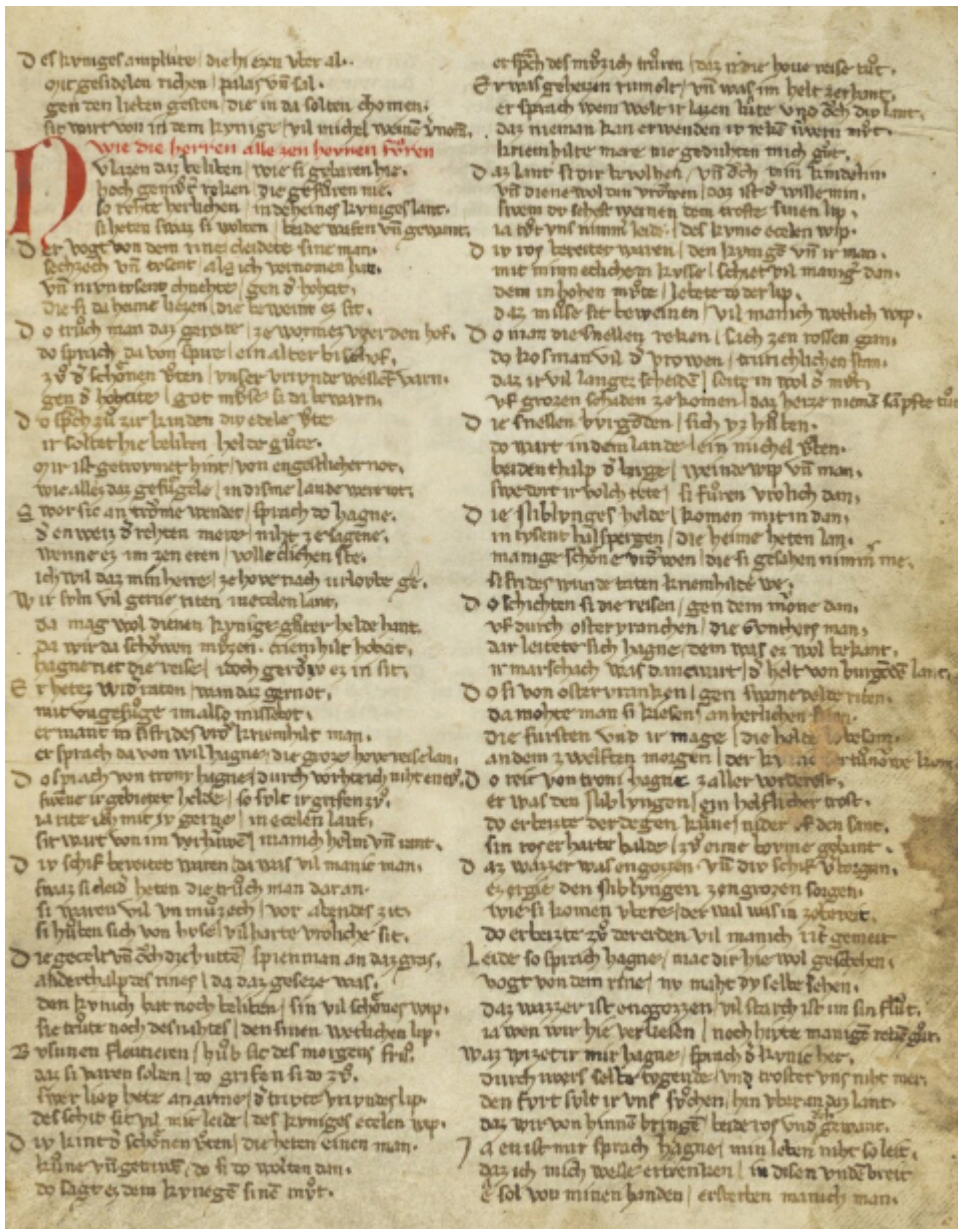 Des kyniges amplute / die hiezen vber al.
mit gesidelen richen / palas vn̄ sal.
gen den lieben gesten / die in da solten chomen.
sit wart von in dem kynige / vil michel weinē
wie die herren alle zen hevnen fůren
Nv lazen daz beliben / wie si gebaren hie.
hoch gemůt reken / die gefůren nie.
so rehte herlichen / in deheines kyniges lant.
si heten swaz si wolten / beide wafen vn̄ gewant.
Der vogt von dem rine / cleidete sine man.
sechzech vn̄ tvsent / als ich vernomen han.
vn̄ nivn tvsent chnehte / gen d' hohzit.
die si da heime liezen / die beweint ez sit.
Do trůch man daz gereite / ze wormez vber den hof.
do sprach da von spire / ein alter bischof.
zv̊ d' schonen vͦten / vnser vrivnde wellent varn.
gen d' hohcite / got můse si da bewarn.
Do sp͛ch zů zir kinden div edele vͦte
ir soltet hie beliben helde gůte.
mir ist getrovmet hint / von engestlicher not.
wie allez daz gefůgele / in disme lande were tot.
Swer sic an trovme wendet / sprach do hagne.
d' en weiz d' rehten mere / niht ze sagene.
wenne ez im zen eren / volleclichen ste.
ich wil daz min herre / ze hove nach vrlovbe ge.
Wir svln vil gerne riten in ecelen lant.
da mag wol dienen kynige gůter helde hant.
da wir da schowen můzen . criemhilt hohzit.
hagne riet die reise / idoch gerow ez in sit.
Er hetez wid'raten / wan daz gernot.
mit vngefůge im also missebot.
er mant in sifrides vro kriemhilt man.
er sprach da von wil hagne / die groze hovereise lan.
Do sprach von trony hagne / durch vorhte ich niht entů.
swēne ir gebietet helde / so svlt ir grifen zv̊.
ia rite ich mit iv gerne / in ecelen lant.
sit wart von im verhowē / manich helm vn̄ rant.
Div schif bereitet waren / da was vil manic man.
swaz si cleid' heten die trůch man dar an.
si waren vil vnmůzech / vor abendes zit.
si hůben sich von hvse / vil harte vroliche sit.
Die gecelt vn̄ och die hutte spien man an daz gras.
anderthalp des rines / da daz geseze was.
den kynich bat noch beliben / sin vil schones wip.
sie trůte noch des nahtes / den sinen wetlichen lip.
Bvsunen flovtieren / hůb sic des morgens frů.
daz si varen solden / do grifen si do zv̊.
swer liep hete an arme / d' trvte vrivndes lip.
des schit sit vil mit leide / des kyniges ecelen wip.
Div kint d' schonen vͦten / die heten einen man.
kůne vn̄ getriwē / do si do wolten dan.
do sagt er dem kynegē sinē mv̊t.
er sp͛ch des můz ich trůren / daz ir die hove reise tůt.
Er was geheizen rumolt / vn̄ was im helt zerhant.
er sprach wem wolt ir lazen lůte vnd och div lant.
daz nieman kan erwenden iv rekē iwern mv̊t.
kriemhilte mere nie gedvhten mich gůt.
Daz lant si dir bevolhen / vn̄ och min kindelin.
vn̄ diene wol den vrowen / daz ist d' wille min.
swem dv sehest weinen dem troste sinen lip.
ia tůt vns nimmˀ leide / des kynic ecelen wip.
Div ros bereitet waren / den kynigē vn̄ ir man.
mit minneclichem kysse / schiet vil manig' dan.
dem in hohen můte / lebete do der lip.
daz můse sit beweinen / vil manich wetlich wip.
Do man die snellen reken / sach zen rossen gan.
do kos man vil d' vrowen / trurichlichen stan.
daz ir vil langez scheidē / seite in wol d' mv̊t.
vf grozen schaden ze komen / daz herze niemā sāpfte tůt
Die snellen bvrgōden / sich vz hůben.
do wart in dem lande / ein michel vͦben.
beidenthalp d' berge / weinde wip vn̄ man.
swe dort ir volch tete / si fůren vrolich dan.
Die niblvnges helde / komen mit in dan.
in tvsent halspergen / die heime heten lan.
manige schone vrowen / die si gesahen nimmˀ me.
sifrides wunde taten kriemhilte we.
Do schichten si die reisen / gen dem mone dan.
vf durch oster vranchen / die Gvnthers man.
dar leitete sich hagne / dem was ez wol bekant.
ir marschach was dancwart / d' helt von burgōdē lant.
Do si von oster vranken / gen swane velde riten.
da mohte man si kiesen / an herlichen
die fursten vnd ir mage / die helde lobesam.
an dem zwelften morgen / der kynic zer tůnowe kom.
Do reit von troni hagne zaller vorderost.
er was den niblyngen / ein helflicher trost.
do erbeizte der degen kůne / nider vf den sant.
sin ros er harte balde / zv̊ eime bovme gebant.
Daz wazzer was engozzen . vn̄ div schif v'borgen.
ez ergie den niblyngen zen grozen sorgen.
wie si komen vbere / der wal was in ze breit.
do erbeizte zv̊ der erden vil manich ritt' gemeit
Leide so sprach hagne / mac dir hie wol geschehen.
vogt von dem rine / nv maht dv selbe sehen.
daz wazzer ist engozzen / vil starch ist im sin flůt.
ia wen wir hie verliesen / noch hivte manigē rekē gůt.
Waz wizet ir mir hagne / sprach d' kynic her.
durch iwers selbes tvgende / vnd trostet vns niht mer.
den fvrt svlt ir vns svchen / hin vber an daz lant.
daz wir von hinnē bringē / beide ros vnd och gewant.
Ia en ist mir sprach hagne / min leben niht so leit.
daz ich mich welle ertrenken / in disen vndē breit
e sol von minen handen / ersterben manich man.